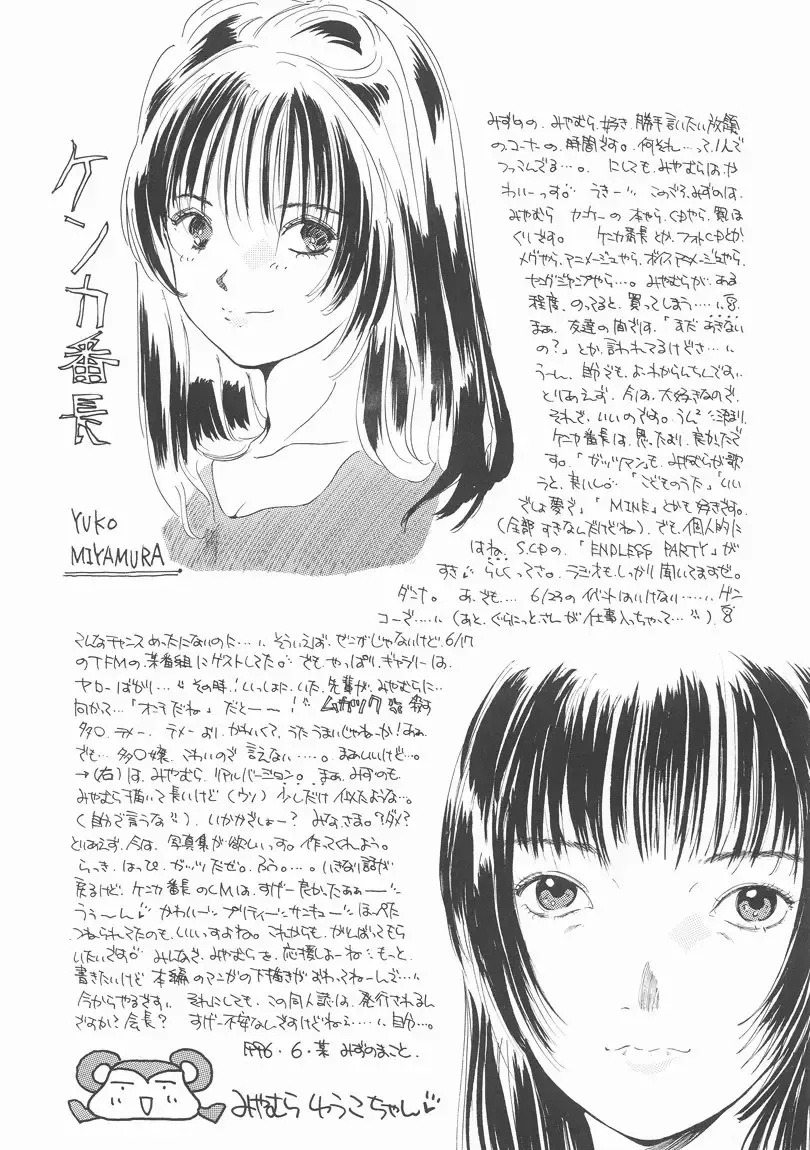 ケンカ番長
YUKO
MIYAMURA.
みずのの、みやむら、好き、勝手言いたい放題
のコーナーの、時間です。何それ…って1人で
つっこんでる…。にしても、みやむらは、か
わいーっす。うきー このごろ、みずのは、
みやむら カンケーの 本やら、CDやら、買いま
くりです。 ケンカ番長 とか、フォトCDとか
メゲやら、アニメージュやら、ボイスアニメージュやら、
ヤングジャンプやら…。みやむらが、ある
程度、のってると、買ってしまう……。
まぁ、友達の間では、「まだ あきない
の?」とか、言われてるけどさ…
うーん、自分でも、よーわからんちんでない
とりあえず、今は、大好きなので、
それで、いいのです。うん
ケンカ番長は、思ったより、良かったで
す。「ガッツマン」も、みやむらが歌
うと、良いし。「こどものうた」「いい
でしょ夢で」「MINE」とかも好きです。
(全部 すきなんだけどね)、でも、個人的に
はね、S.CDの、「ENDLESS PARTY」が
すき らしくってさ。ラジオも、しっかり 聞いてますぜ。
ダンナ。 あ、でも… 6/23の イベントはいけない……ゲン
コーで……(あと、ぐらにっとさんが仕事入っちゃって…)
こんなチャンスめったにないのに…、そういえば、ぜんぜんじゃないけど、6/17
のTFMの某番組にゲストしてた。でも やっぱり、ギャラリーは、
ヤローばかり…その時、いっしょに、いた、先輩が、みやむらに
向かって…「オンチだね」だとーー! ムカツク
多〇、テメー、テメーより、かわいくて、うたうまいじゃねーか!あぁ
でも…多〇嬢、こわいので 言えない…。まぁいいけど…。
→(右)は、みやむら、リアルバージョン。まぁ、みずのも
みやむら描いて長いけど(ウソ)少しだけ 似たような…。
(自分で言うな)、いかがでしょー? みなさま。?ダメ?
とりあえず、今は、写真集が欲しいっす。作ってくれよう。
らっき、はっぴ、ガッツだぜ。ふう…。いきなり話が
戻るけど、ケンカ番長のCMは、すげー良かったぁぁー
うぅーん かわいー プリティー サンキュー ほっぺた
つねられてたのも、いいっすよね。これからも、がんばってもら
いたいです みんなで、みやむらを、応援しよーね もっと、
書きたいけど 本編のマンガの下描きがおわってねーんで…
今からやるです。 それにしても、この同人誌は、発行されるん
ですか?会長? すげー不安なんですけどねぇ……自分…。
1996・6・某 みずのまこと、
みやむら ゆうこちゃん